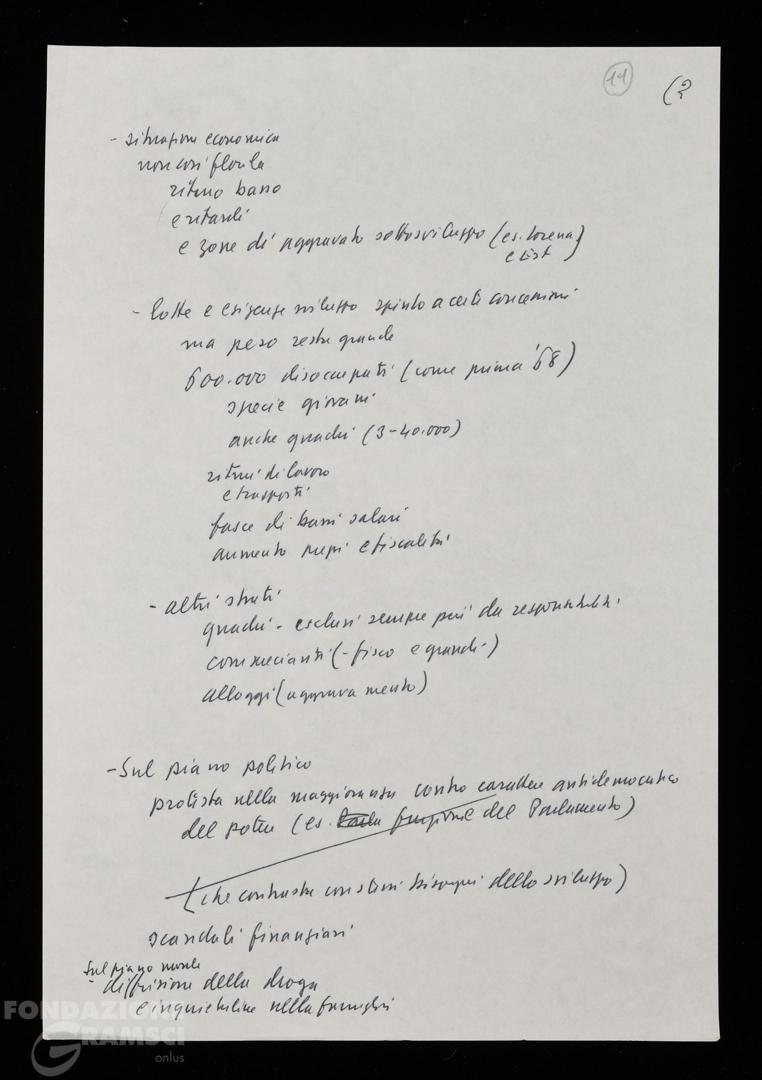 11
(2
- situazione economica
non così florida
ritmo basso
e ritardi
e zone di aggravato sottosviluppo (es. Lorena
e Est)
- lotte e esigenze sviluppo spinto a certe concessioni
ma peso resta grande
600.000 disoccupati (come prima '68)
specie giovani
anche quadri (3-40.000)
ritmi di lavoro
e trasporti
fasce di bassi salari
aumento prezzi e fiscalità
- altri strati
quadri - esclusi sempre più da responsabilità
commercianti (- fisco e grandi -)
alloggi (aggravamento)
- Sul piano politico
protesta nella maggioranza contro carattere antidemocratico
del potere (es. funzione del Parlamento)
(che contrasta con stessi bisogni dello sviluppo)
scandali finanziari
Sul piano morale
- diffusione della droga
e inquietudine nelle famiglie
FONDAZIONE
GRAMSCI
onlus